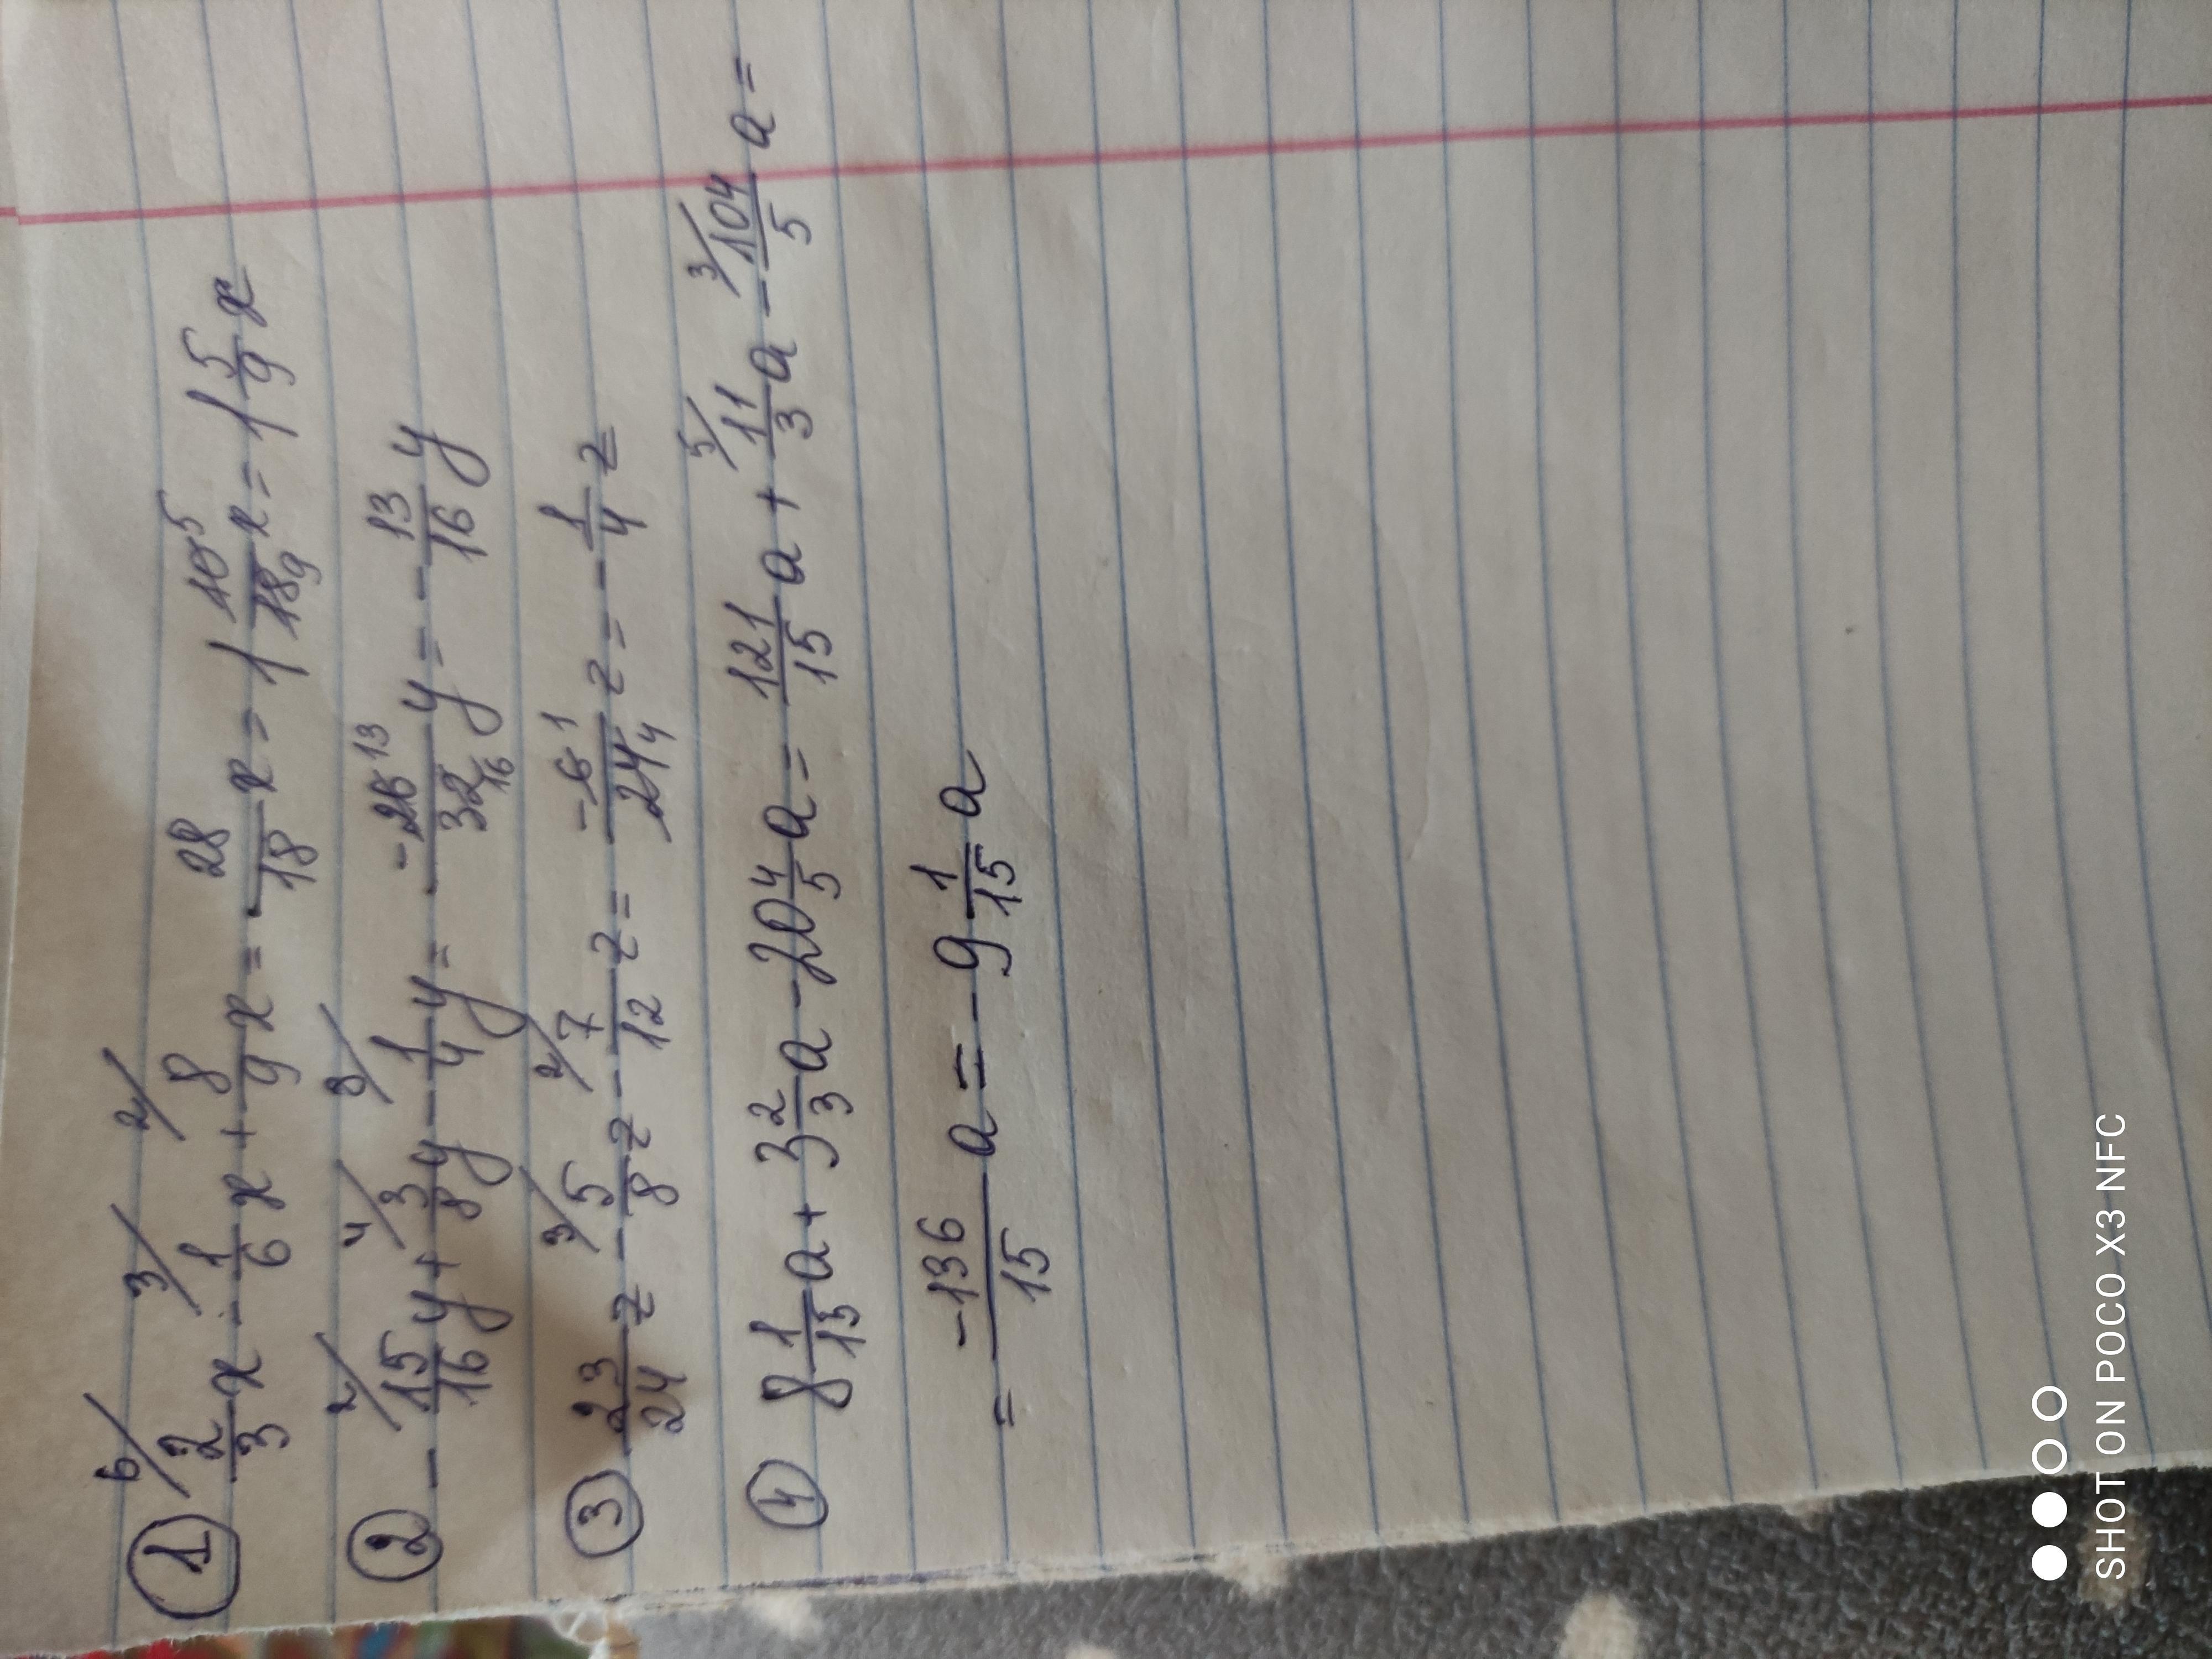 ① 6/ 2/3 x - 3/ 1/6 x + 2/ 8/9 x = 28/18 x = 1 10 5/18 9 x = 1 5/9 x
② - 2/ 15/16 y + 4/ 3/8 y - 8/ 1/4 y = -26 13/32 16 y = - 13/16 y
③ 23/24 z - 3/ 5/8 z - 2/ 7/12 z = -6 1/24 4 z = - 1/4 z
④ 8 1/15 a + 3 2/3 a - 20 4/5 a = 121/15 a + 5/ 11/3 a - 3/ 104/5 a =
= -136/15 a = - 9 1/15 a
SHOT ON POCO X3 NFC